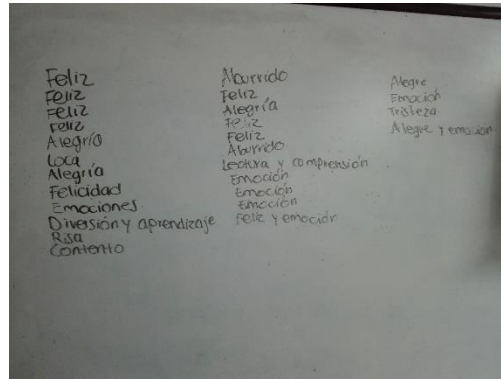 Feliz
Feliz
Feliz
Feliz
Alegría
Loca
Alegría
Felicidad
Emociones
Diversión y aprendizaje
Risa
Contento
Aburrido
Feliz
Alegría
Feliz
Feliz
Aburrido
Lectura y comprensión
Emoción
Emoción
Emoción
Feliz y emoción
Alegre
Emoción
Tristeza
Alegre y emoción